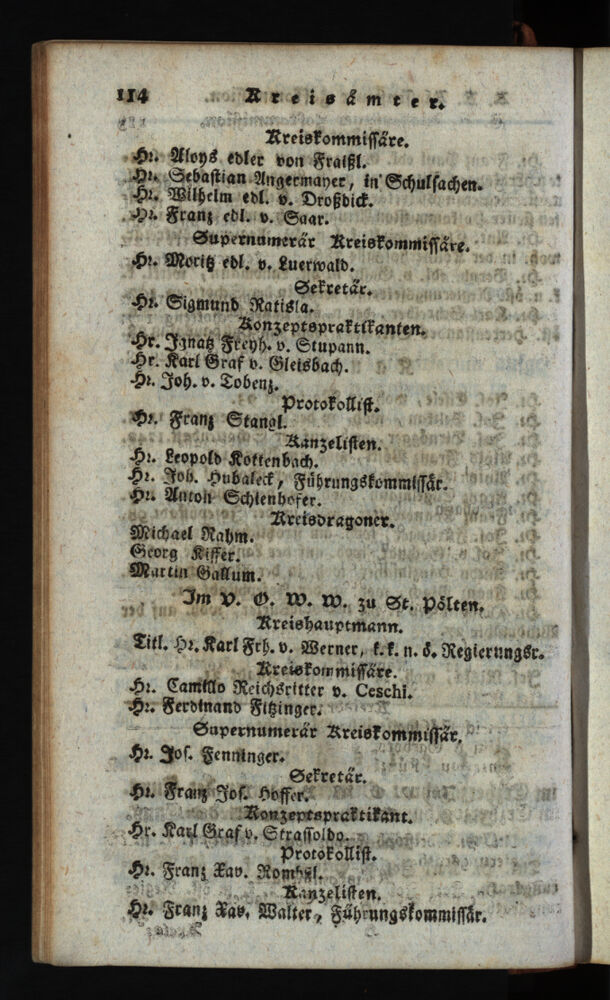 114 Kreisämter.
Kreiskommissäre.
Hr. Aloys edler von Fraißl.
Hr. Sebastian Angermayer, in Schulsachen.
Hr. Wilhelm edl. v. Droßdick.
Hr. Franz edl. v. Saar.
Supernumerär Kreiskommissäre.
Hr. Moritz edl. v. Luerwald.
Sekretär.
Hr. Sigmund Ratisla.
Konzeptspraktikanten.
Hr. Ignatz Freyh. v. Stupann.
Hr. Karl Graf v. Gleisbach.
Hr. Joh. v. Tobenz.
Protokollist.
Hr. Franz Stangl.
Kanzelisten.
Hr. Leopold Kottenbach.
Hr. Joh. Hubaleck, Führungskommissär.
Hr. Anton Schienhofer.
Kreisdragoner.
Michael Rahm.
Georg Kiffer.
Martin Gallum.
Im V. O. W. W. zu St. Pölten.
Kreishauptmann.
Titl. Hr. Karl Frh. v. Werner, k. k. n. ö. Regierungsr.
Kreiskommissäre.
Hr. Camillo Reichsritter v. Ceschi.
Hr. Ferdinand Fitzinger.
Supernumerär Kreiskommissär.
Hr. Jos. Fenninger.
Sekretär.
Hr. Franz Jos. Hoffer.
Konzeptspraktikant.
Hr. Karl Graf v. Strassoldo.
Protokollist.
Hr. Franz Xav.
Kanzelisten.
Hr. Franz Xav. Walter, Führungskommissär.